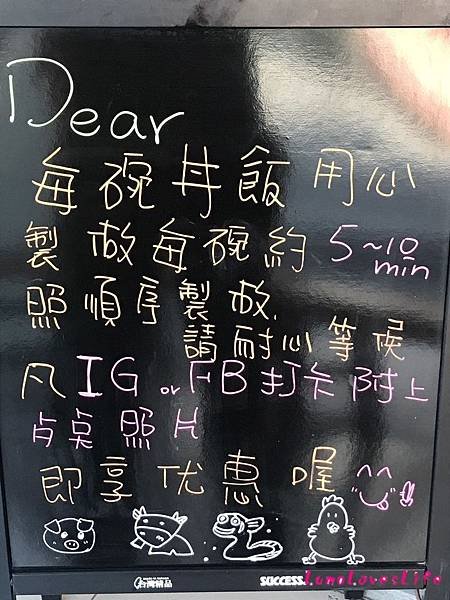 Dear
每碗丼飯用心
製做每碗約5~10min
照順序製做,
請耐心等候
凡IG or FB打卡附上
点莫照片
即享优惠喔^^
台灣精品
SUCCESS
LunaLovesLife